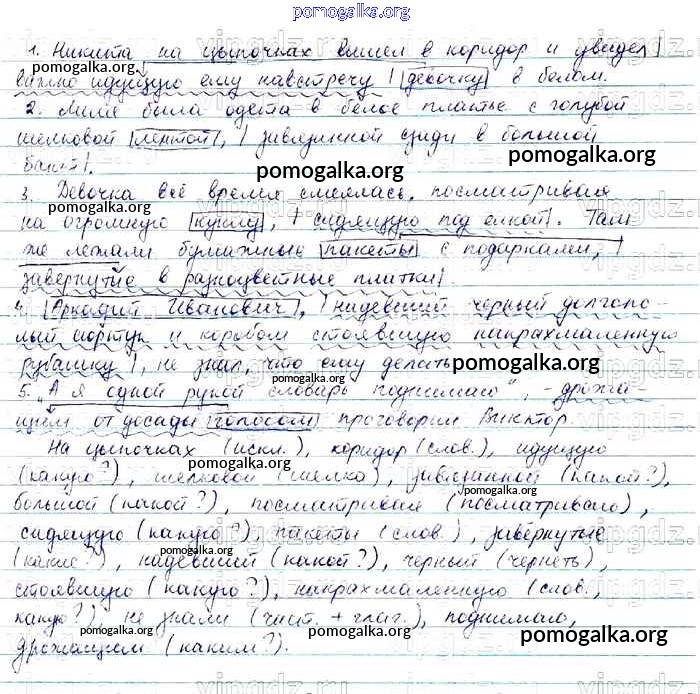 pomogalka.org
1. Никита на цыпочках вышел в коридор и увидел |
важно идущую ему навстречу | девочку в белом.
2. Лиля была одета в белое платье с голубой
шелковой лентой, | завязанной сзади в большой
бант |.
3. Девочка всё время смеялась, посматривая
на огромную куклу, | сидящую под елкой |. Там
же лежали бумажные пакеты с подарками, |
завернутые в разноцветные платки |.
4. Аркадий Иванович, | надевший черный долгопо-
лый сюртук и коробом стоявшую накрахмаленную
рубашку |, не знал, что ему делать
5. "А я одной рукой словарь поднимаю", - дрожа-
щим от досады голосом проговорил Виктор.
На цыпочках (искл.), коридор (слов.), идущую
(какую?), шелковой (шелка), завязанной (какой?),
большой (какой?), посматривая (посматриваю),
сидящую (какую?), пакеты (слов.), завёрнутые
(какие?), надевший (какой?), черный (чернеть),
стоявшую (какую?), накрахмаленную (слов.,
какую?), не знали (част. + глаг.), поднимаю,
дрожащим (каким?).